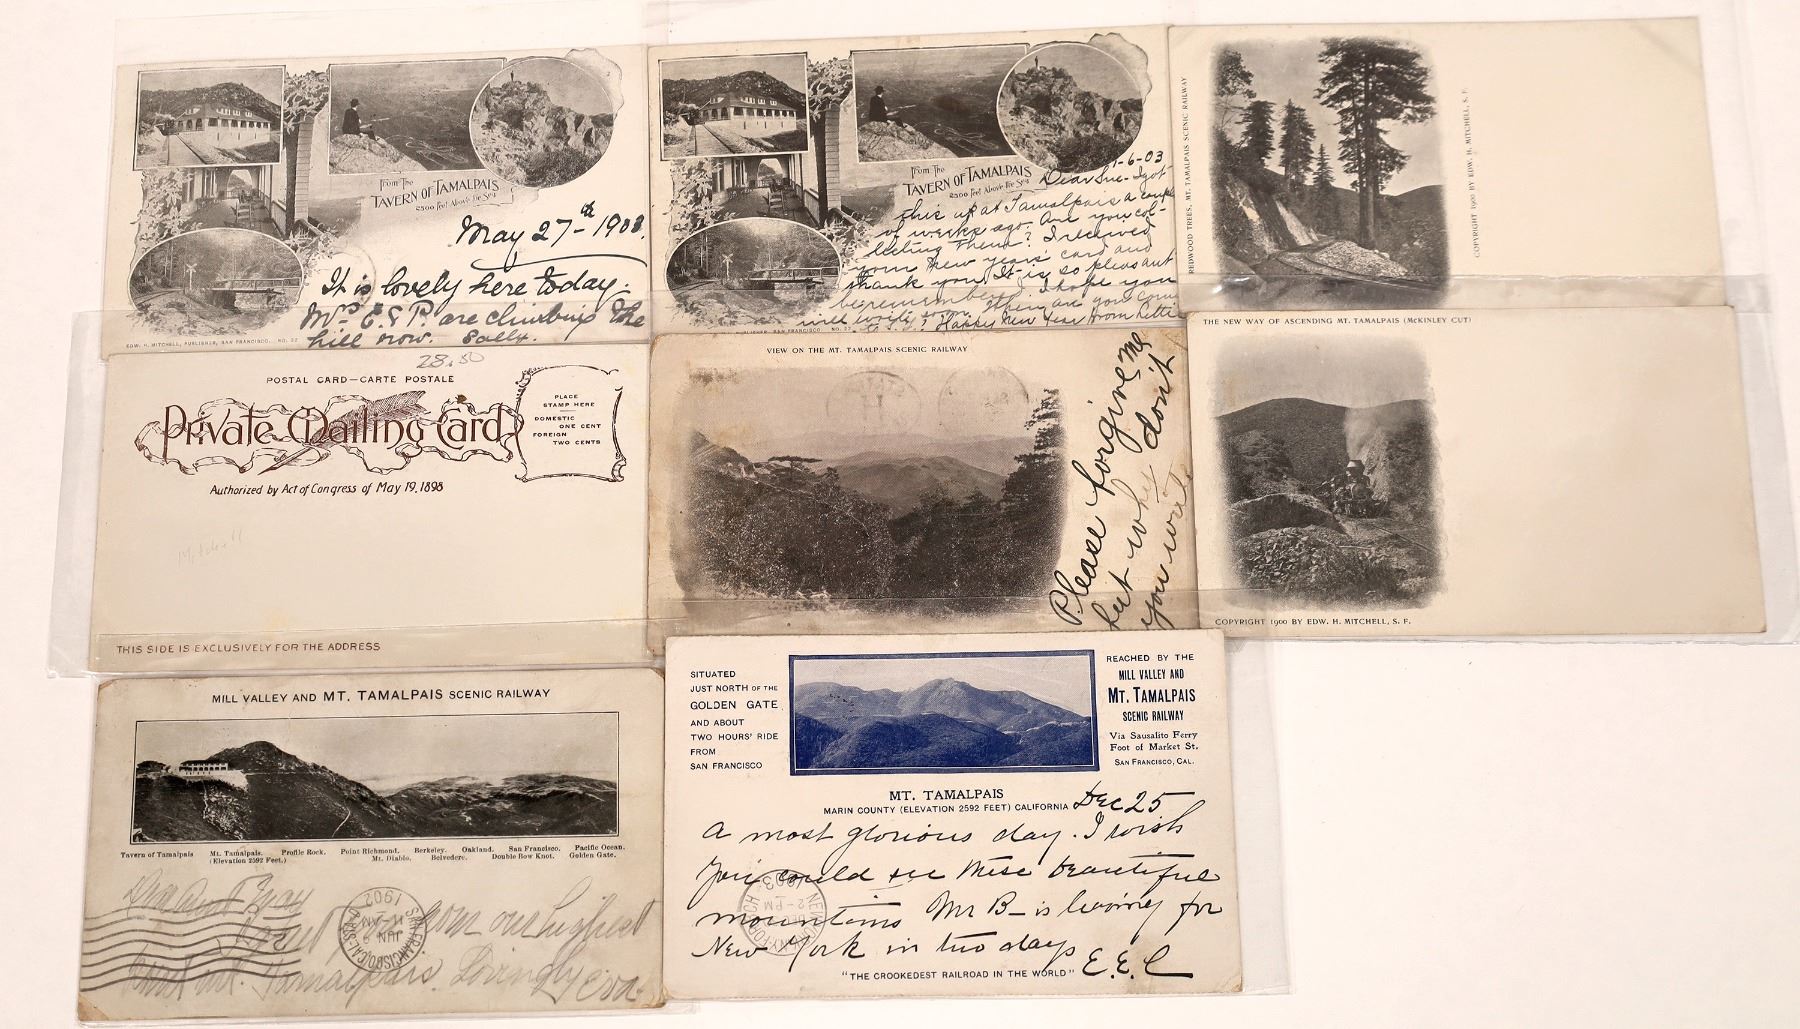 From The
TAVERN OF TAMALPAIS
2500 Feet Above The Sea
May 27th - 1903.
It is lovely here today -
Mr. E. & P. are climbing the
hill now. Sally.
EDW. H. MITCHELL, PUBLISHER, SAN FRANCISCO. NO. 22
From The
TAVERN OF TAMALPAIS
2500 Feet Above The Sea
1-6-03
Dear Sue - I got
this up at Tamalpais a couple
of weeks ago. Are you col-
lecting them? I received
your New years card and
thank you. It is so pleasant
to be remembered. I hope you
will write soon. When are you coming
Happy New Year from
PUBLISHER, SAN FRANCISCO. NO. 22
REDWOOD TREES, MT. TAMALPAIS SCENIC RAILWAY
COPYRIGHT 1900 BY EDW. H. MITCHELL, S. F.
28.50
POSTAL CARD—CARTE POSTALE
Private Mailing Card
Authorized by Act of Congress of May 19, 1898
PLACE
STAMP HERE
DOMESTIC
ONE CENT
FOREIGN
TWO CENTS
Mitchell
THIS SIDE IS EXCLUSIVELY FOR THE ADDRESS
VIEW ON THE MT. TAMALPAIS SCENIC RAILWAY
Please forgive me
but why don't
you write
THE NEW WAY OF ASCENDING MT. TAMALPAIS (McKINLEY CUT)
COPYRIGHT 1900 BY EDW. H. MITCHELL, S. F.
MILL VALLEY AND MT. TAMALPAIS SCENIC RAILWAY
Tavern of Tamalpais Mt. Tamalpais. Profile Rock. Point Richmond. Berkeley. Oakland. San Francisco. Pacific Ocean.
(Elevation 2592 Feet.) Mt. Diablo. Belvedere. Double Bow Knot. Golden Gate.
from our highest
Tamalpais. Lovingly Eva
SAN FRANCISCO, CAL.
JUN 9
11-AM
1902
SITUATED
JUST NORTH OF THE
GOLDEN GATE
AND ABOUT
TWO HOURS' RIDE
FROM
SAN FRANCISCO
REACHED BY THE
MILL VALLEY AND
MT. TAMALPAIS
SCENIC RAILWAY
Via Sausalito Ferry
Foot of Market St.
SAN FRANCISCO, CAL.
MT. TAMALPAIS
MARIN COUNTY (ELEVATION 2592 FEET) CALIFORNIA
Dec 25
A most glorious day. I wish
you could see these beautiful
mountains Mr B- is leaving for
New York in two days
E. E. C
1903
"THE CROOKEDEST RAILROAD IN THE WORLD"